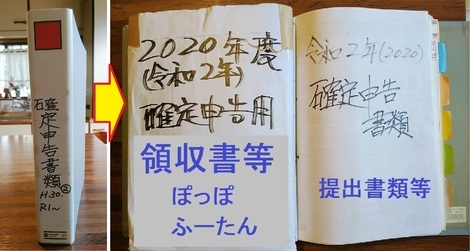 確定申告書類②
H30.
R1〜
2020年度
(令和2年)
確定申告用
領収書等
ぽっぽ
ふーたん
令和2年(2020)
確定申告
書類
提出書類等